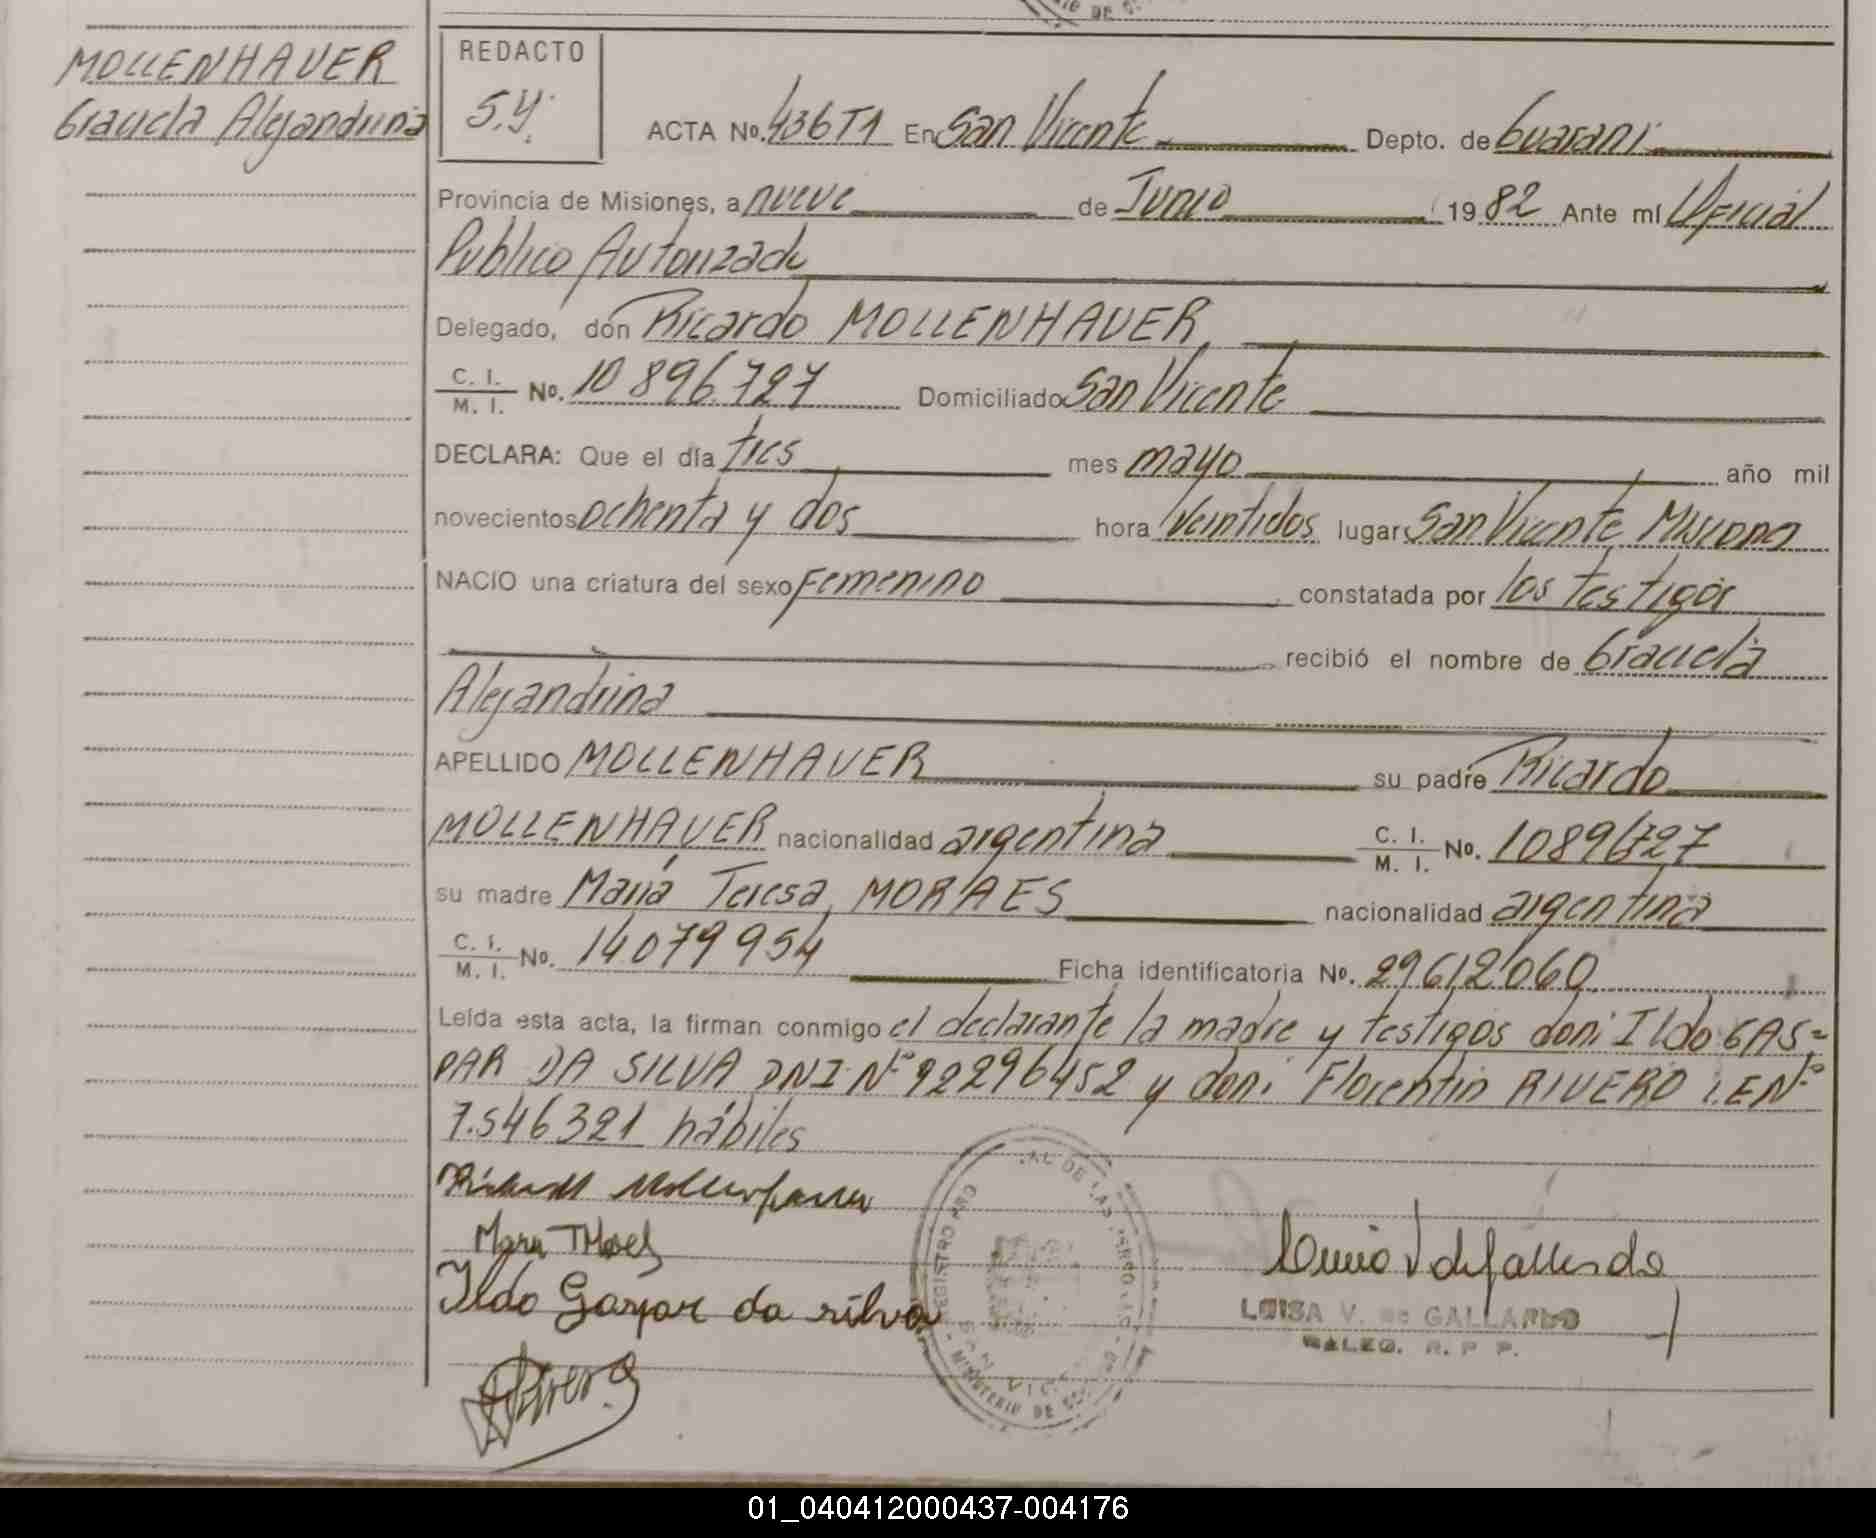 MOLLENHAUER
Graciela Alejandrina
REDACTO
S.Y.
ACTA No. 436T1 En San Vicente Depto. de Guaraní
Provincia de Misiones, a nueve de Junio 19 82 Ante mí Oficial
Público Autorizado
Delegado, don Ricardo MOLLENHAUER
C. I.
M. I. No. 10 896.727 Domiciliado San Vicente
DECLARA: Que el día tres mes mayo año mil
novecientos ochenta y dos hora veintidos lugar San Vicente Misiones
NACIO una criatura del sexo Femenino constatada por los testigos
recibió el nombre de Graciela
Alejandrina
APELLIDO MOLLENHAUER su padre Ricardo
MOLLENHAUER nacionalidad argentina C. I. M. I. No. 10896727
su madre María Teresa MORAES nacionalidad argentina
C. I. M. I. No. 14079954 Ficha identificatoria No. 29612060
Leída esta acta, la firman conmigo el declarante la madre y testigos don: Ildo GAS=
PAR DA SILVA DNI Nº 92296452 y don: Florentin RIVERO L.E Nº
7.546321 hábiles
Ildo Gaspar da silva
LUISA V. de GALLARDO
R. P. P.
01_040412000437-004176